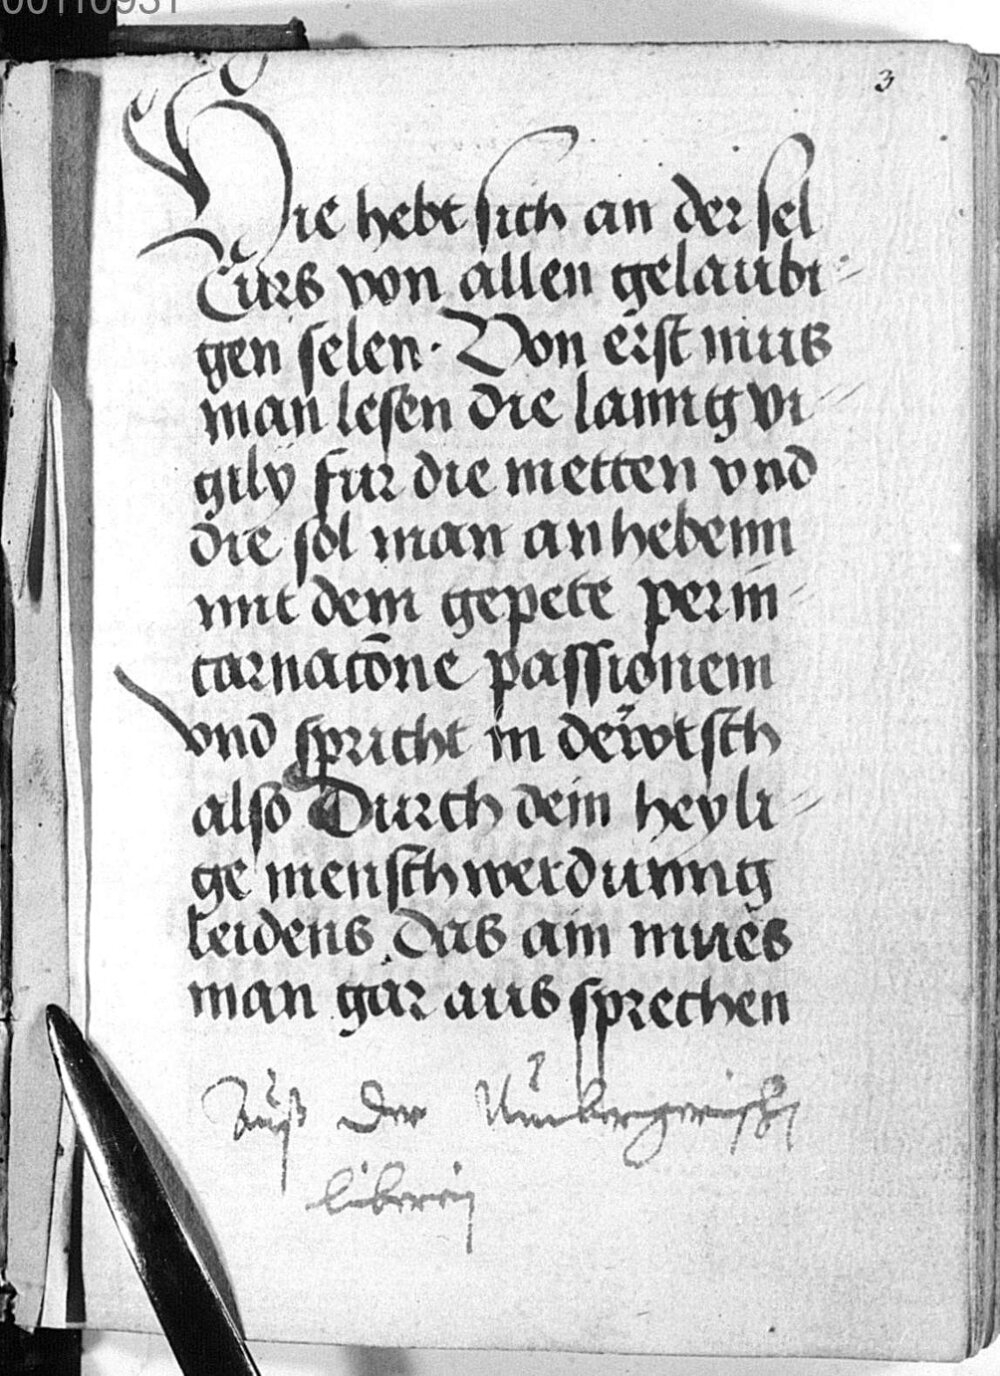 00110931
3
Hie hebt sich an der sel
Curs von allen gelaubi-
gen selen. Von erst mus
man lesen die lanng vi-
gily fur die metten vnd
die sol man anhebenn
mit dem gepete per in-
carnacōne passionem
vnd spricht in dewtsch
also Durch dein heyli-
ge menschwerdunng
leidens. Das ain mues
man gar aus sprechen
Auß der Nürnbergerischen
liberein